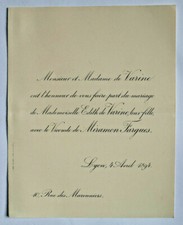 Monsieur et Madame de Varine
ont l'honneur de vous faire part du mariage
de Mademoiselle Edith de Varine, leur fille,
avec le Vicomte de Miramon Fargues.
Lyon, 4 Avril 1894
10, Rue des Marronniers.